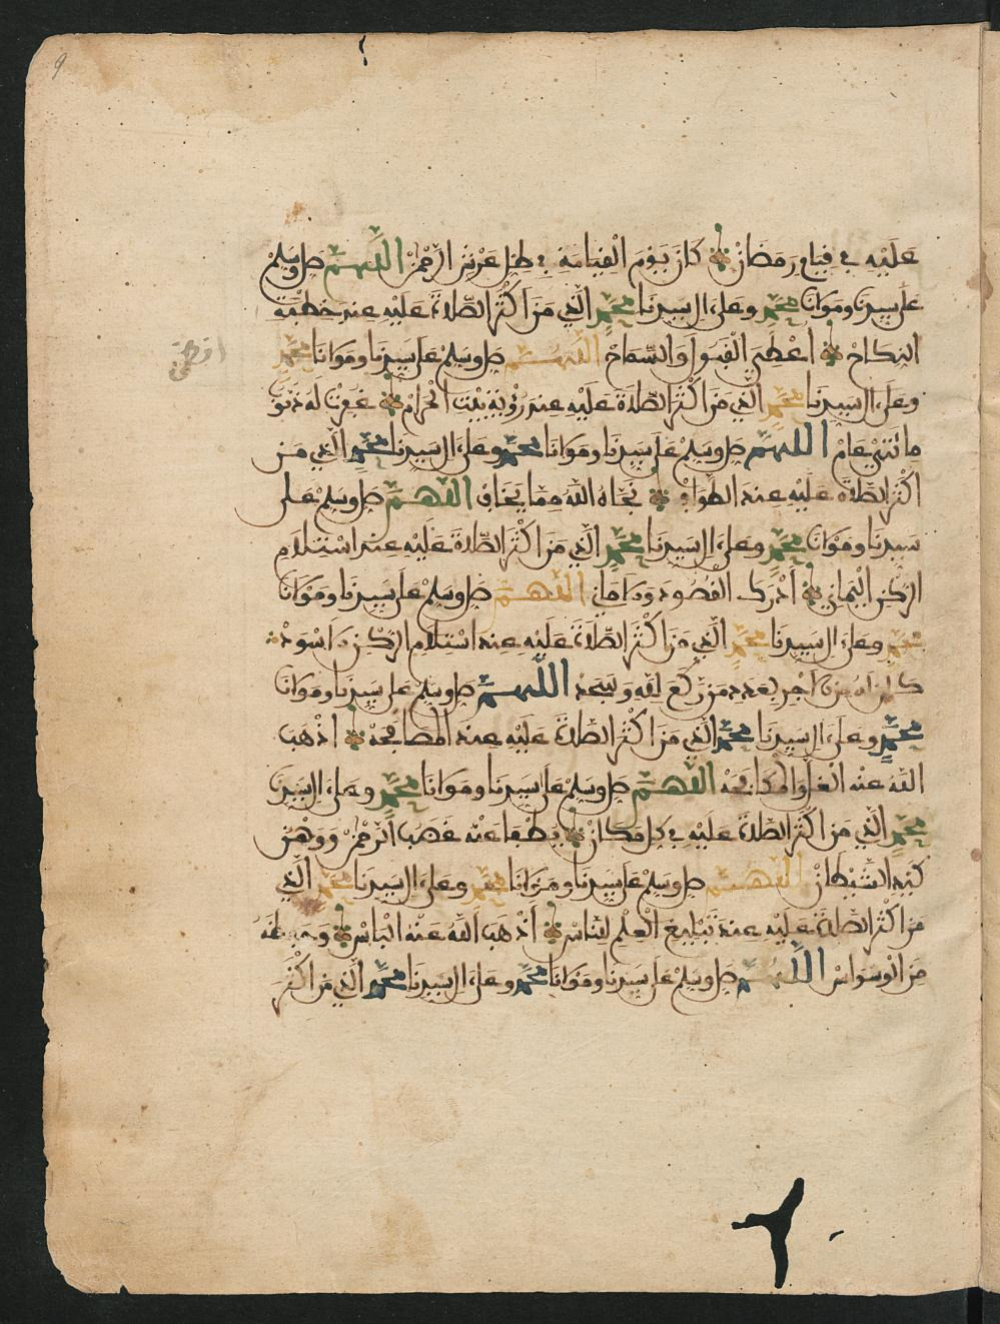 عَلَيْهِ فِي قِيَامِ رَمَضَانْ كَانَ يَوْمَ الْقِيَامَةِ فِي ظِلِّ عَرْشِ الرَّحْمٰنْ اللَّهُمَّ صَلِّ وَسَلِّمْ
عَلَى سَيِّدِنَا وَمَوْلَانَا مُحَمَّدٍ وَعَلَى ءَالِ سَيِّدِنَا مُحَمَّدٍ الَّذِي مَنْ أَكْثَرَ الصَّلَاةَ عَلَيْهِ عِنْدَ خِطْبَةِ
النِّكَاحْ أُعْطِيَ الْقَبُولَ وَالسَّمَاحْ اللَّهُمَّ صَلِّ وَسَلِّمْ عَلَى سَيِّدِنَا وَمَوْلَانَا مُحَمَّدٍ
وَعَلَى ءَالِ سَيِّدِنَا مُحَمَّدٍ الَّذِي مَنْ أَكْثَرَ الصَّلَاةَ عَلَيْهِ عِنْدَ رُؤْيَةِ بَيْتِ الْحَرَامْ غُفِرَتْ لَهُ ذُنُوبُ
مِائَتَيْ عَامْ اللَّهُمَّ صَلِّ وَسَلِّمْ عَلَى سَيِّدِنَا وَمَوْلَانَا مُحَمَّدٍ وَعَلَى ءَالِ سَيِّدِنَا مُحَمَّدٍ الَّذِي مَنْ
أَكْثَرَ الصَّلَاةَ عَلَيْهِ عِنْدَ الطَّوَافْ نَجَّاهُ اللَّهُ مِمَّا يَخَافْ اللَّهُمَّ صَلِّ وَسَلِّمْ عَلَى
سَيِّدِنَا وَمَوْلَانَا مُحَمَّدٍ وَعَلَى ءَالِ سَيِّدِنَا مُحَمَّدٍ الَّذِي مَنْ أَكْثَرَ الصَّلَاةَ عَلَيْهِ عِنْدَ اسْتِلَامِ
الرُّكْنِ الْيَمَانِي أَدْرَكَ الْقُصُودَ وَالْأَمَانِي اللَّهُمَّ صَلِّ وَسَلِّمْ عَلَى سَيِّدِنَا وَمَوْلَانَا
مُحَمَّدٍ وَعَلَى ءَالِ سَيِّدِنَا مُحَمَّدٍ الَّذِي مَنْ أَكْثَرَ الصَّلَاةَ عَلَيْهِ عِنْدَ اسْتِلَامِ الرُّكْنِ الْأَسْوَدْ
كَانَ لَهُ مِنَ الْأَجْرِ بِعَدَدِ مَنْ رَكَعَ لِلَّهِ وَسَجَدْ اللَّهُمَّ صَلِّ وَسَلِّمْ عَلَى سَيِّدِنَا وَمَوْلَانَا
مُحَمَّدٍ وَعَلَى ءَالِ سَيِّدِنَا مُحَمَّدٍ الَّذِي مَنْ أَكْثَرَ الصَّلَاةَ عَلَيْهِ عِنْدَ الْمُصَافَحَهْ أَذْهَبَ
اللَّهُ عَنْهُ الْغِلَّ وَالْمُكَافَحَهْ اللَّهُمَّ صَلِّ وَسَلِّمْ عَلَى سَيِّدِنَا وَمَوْلَانَا مُحَمَّدٍ وَعَلَى ءَالِ سَيِّدِنَا
مُحَمَّدٍ الَّذِي مَنْ أَكْثَرَ الصَّلَاةَ عَلَيْهِ فِي كُلِّ مَكَانْ يُطْفَأُ عَنْهُ غَضَبُ الرَّحْمٰنْ وَوَهَنَ
كَيْدُ الشَّيْطَانْ اللَّهُمَّ صَلِّ وَسَلِّمْ عَلَى سَيِّدِنَا وَمَوْلَانَا مُحَمَّدٍ وَعَلَى ءَالِ سَيِّدِنَا مُحَمَّدٍ الَّذِي
مَنْ أَكْثَرَ الصَّلَاةَ عَلَيْهِ عِنْدَ تَبْلِيغِ الْعِلْمِ لِلنَّاسْ أَذْهَبَ اللَّهُ عَنْهُ الْبَاسْ وَحَفِظَهُ
مِنَ الْوَسْوَاسْ اللَّهُمَّ صَلِّ وَسَلِّمْ عَلَى سَيِّدِنَا وَمَوْلَانَا مُحَمَّدٍ وَعَلَى ءَالِ سَيِّدِنَا مُحَمَّدٍ الَّذِي مَنْ أَكْثَرَ